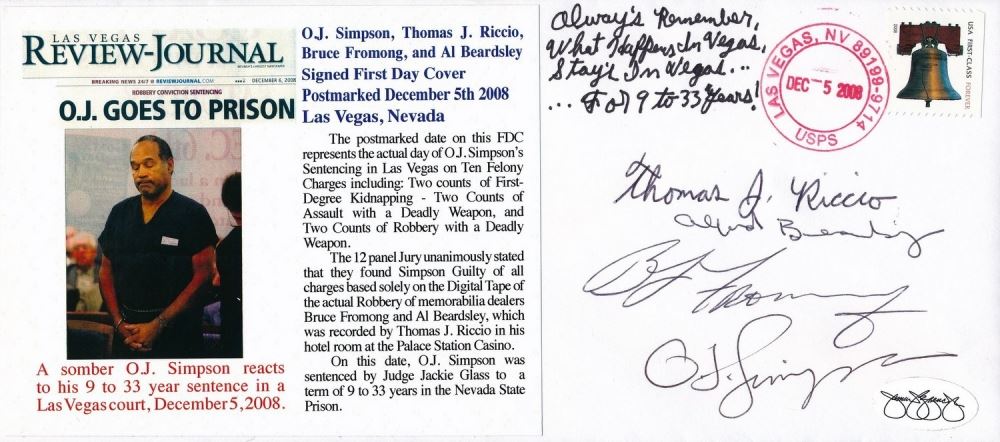 LAS VEGAS
REVIEW-JOURNAL
BREAKING NEWS 24/7 @ REVIEWJOURNAL.COM
DECEMBER 6, 2008
ROBBERY CONVICTION SENTENCING
O.J. GOES TO PRISON
A somber O.J. Simpson reacts
to his 9 to 33 year sentence in a
Las Vegas court, December 5, 2008.
O.J. Simpson, Thomas J. Riccio,
Bruce Fromong, and Al Beardsley
Signed First Day Cover
Postmarked December 5th 2008
Las Vegas, Nevada
The postmarked date on this FDC
represents the actual day of O.J. Simpson's
Sentencing in Las Vegas on Ten Felony
Charges including: Two counts of First-
Degree Kidnapping - Two Counts of
Assault with a Deadly Weapon, and
Two Counts of Robbery with a Deadly
Weapon.
The 12 panel Jury unanimously stated
that they found Simpson Guilty of all
charges based solely on the Digital Tape of
the actual Robbery of memorabilia dealers
Bruce Fromong and Al Beardsley, which
was recorded by Thomas J. Riccio in his
hotel room at the Palace Station Casino.
On this date, O.J. Simpson was
sentenced by Judge Jackie Glass to a
term of 9 to 33 years in the Nevada State
Prison.
Alway's Remember,
What Happens In Vegas,
Stay's In Vegas...
... For 9 to 33 Years!
LAS VEGAS, NV 89199-9714
DEC -5 2008
USPS
USA FIRST-CLASS FOREVER
2008
Thomas J. Riccio
Alfred Beardsley
B Fromong
O.J. Simpson